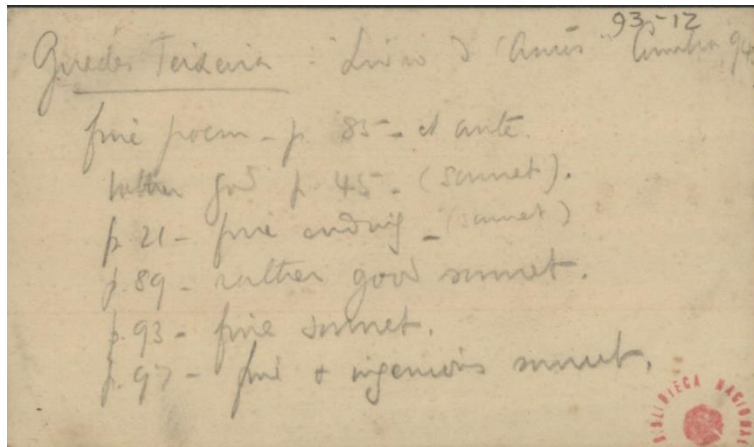 93-12
Guedes Teixeira - "Livro d'Amor" Coimbra, 94
fine poem - p. 85 - et ante.
rather good p. 45 - (sonnet).
p. 21 - fine ending - (sonnet)
p. 89 - rather good sonnet.
p. 93 - fine sonnet.
p. 97 - fine & ingenious sonnet.
BIBLIOTECA NACIONAL